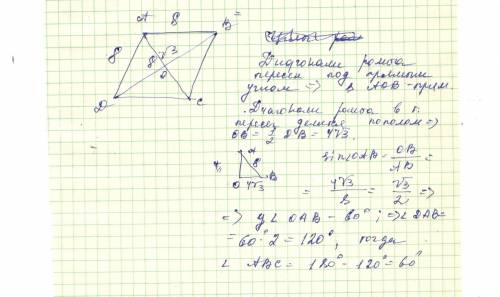 A 8 B
8 8√3
O
D C
Диагонали ромба
пересек под прямым
углом => △ AOB – прям.
Диагонали ромба в т.
пересеч делятся пополам =>
OB = 1/2 DB = 4√3.
A
8
O 4√3 B
sin∠OAB = OB/AB =
= 4√3/8 = √3/2 =>
=> ∠ OAB – 60°; => ∠ DAB =
= 60° · 2 = 120°, тогда
∠ ABC = 180° – 120° = 60°